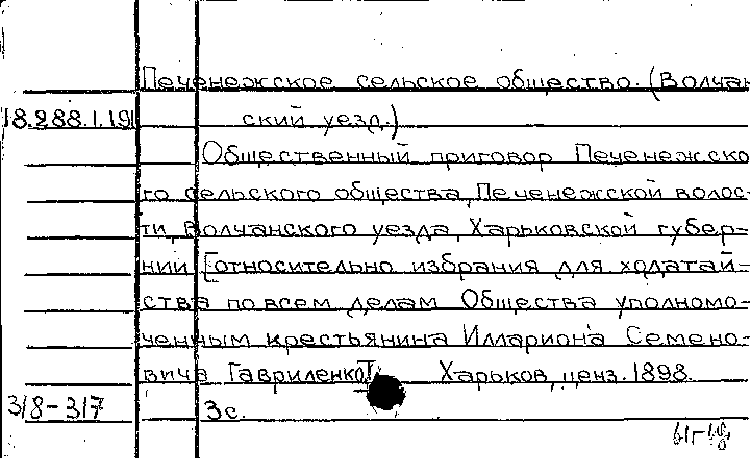 Печенежское сельское общество. (Волчан
18.288.1.19 ский уезд.)
Общественный приговор Печенежско
го сельского общества, Печенежской волос-
ти, Волчанского уезда, Харьковской губер-
нии [относительно избрания для ходатай-
ства по всем делам Общества уполномо-
ченным крестьянина Иллариона Семено-
вича Гавриленко]. Харьков, ценз. 1898.
318-317 3с.